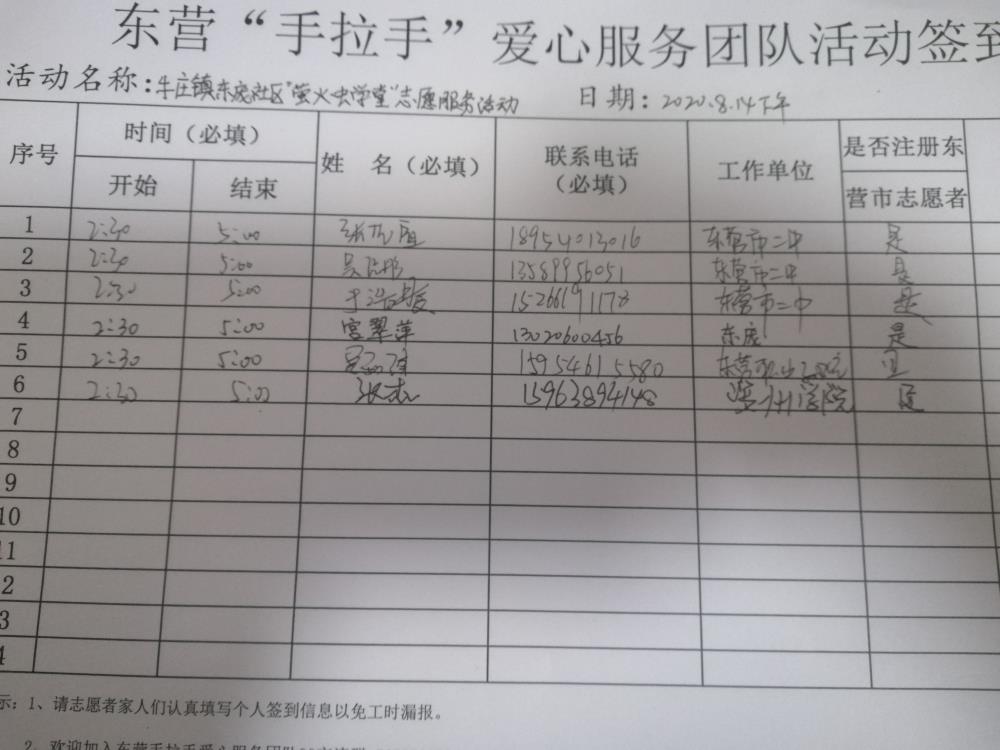 东营“手拉手”爱心服务团队活动签到
活动名称:牛庄镇东庞社区“萤火虫学堂”志愿服务活动 日期:2020.8.14下午
序号 时间(必填) 姓 名(必填) 联系电话(必填) 工作单位 是否注册东营市志愿者
开始 结束
1 2:30 5:00 18954013016 东营市二中 是
2 2:30 5:00 13589956051 东营市二中 是
3 2:30 5:00 15266191178 东营市二中 是
4 2:30 5:00 宫翠萍 13020600456 东庞 是
5 2:30 5:00 15954615580 是
6 2:30 5:00 张杰 15963894148 滨州学院 是
7
8
9
10
11
2
3
4
示:1、请志愿者家人们认真填写个人签到信息以免工时漏报。
2、欢迎加入东营手拉手爱心服务团队